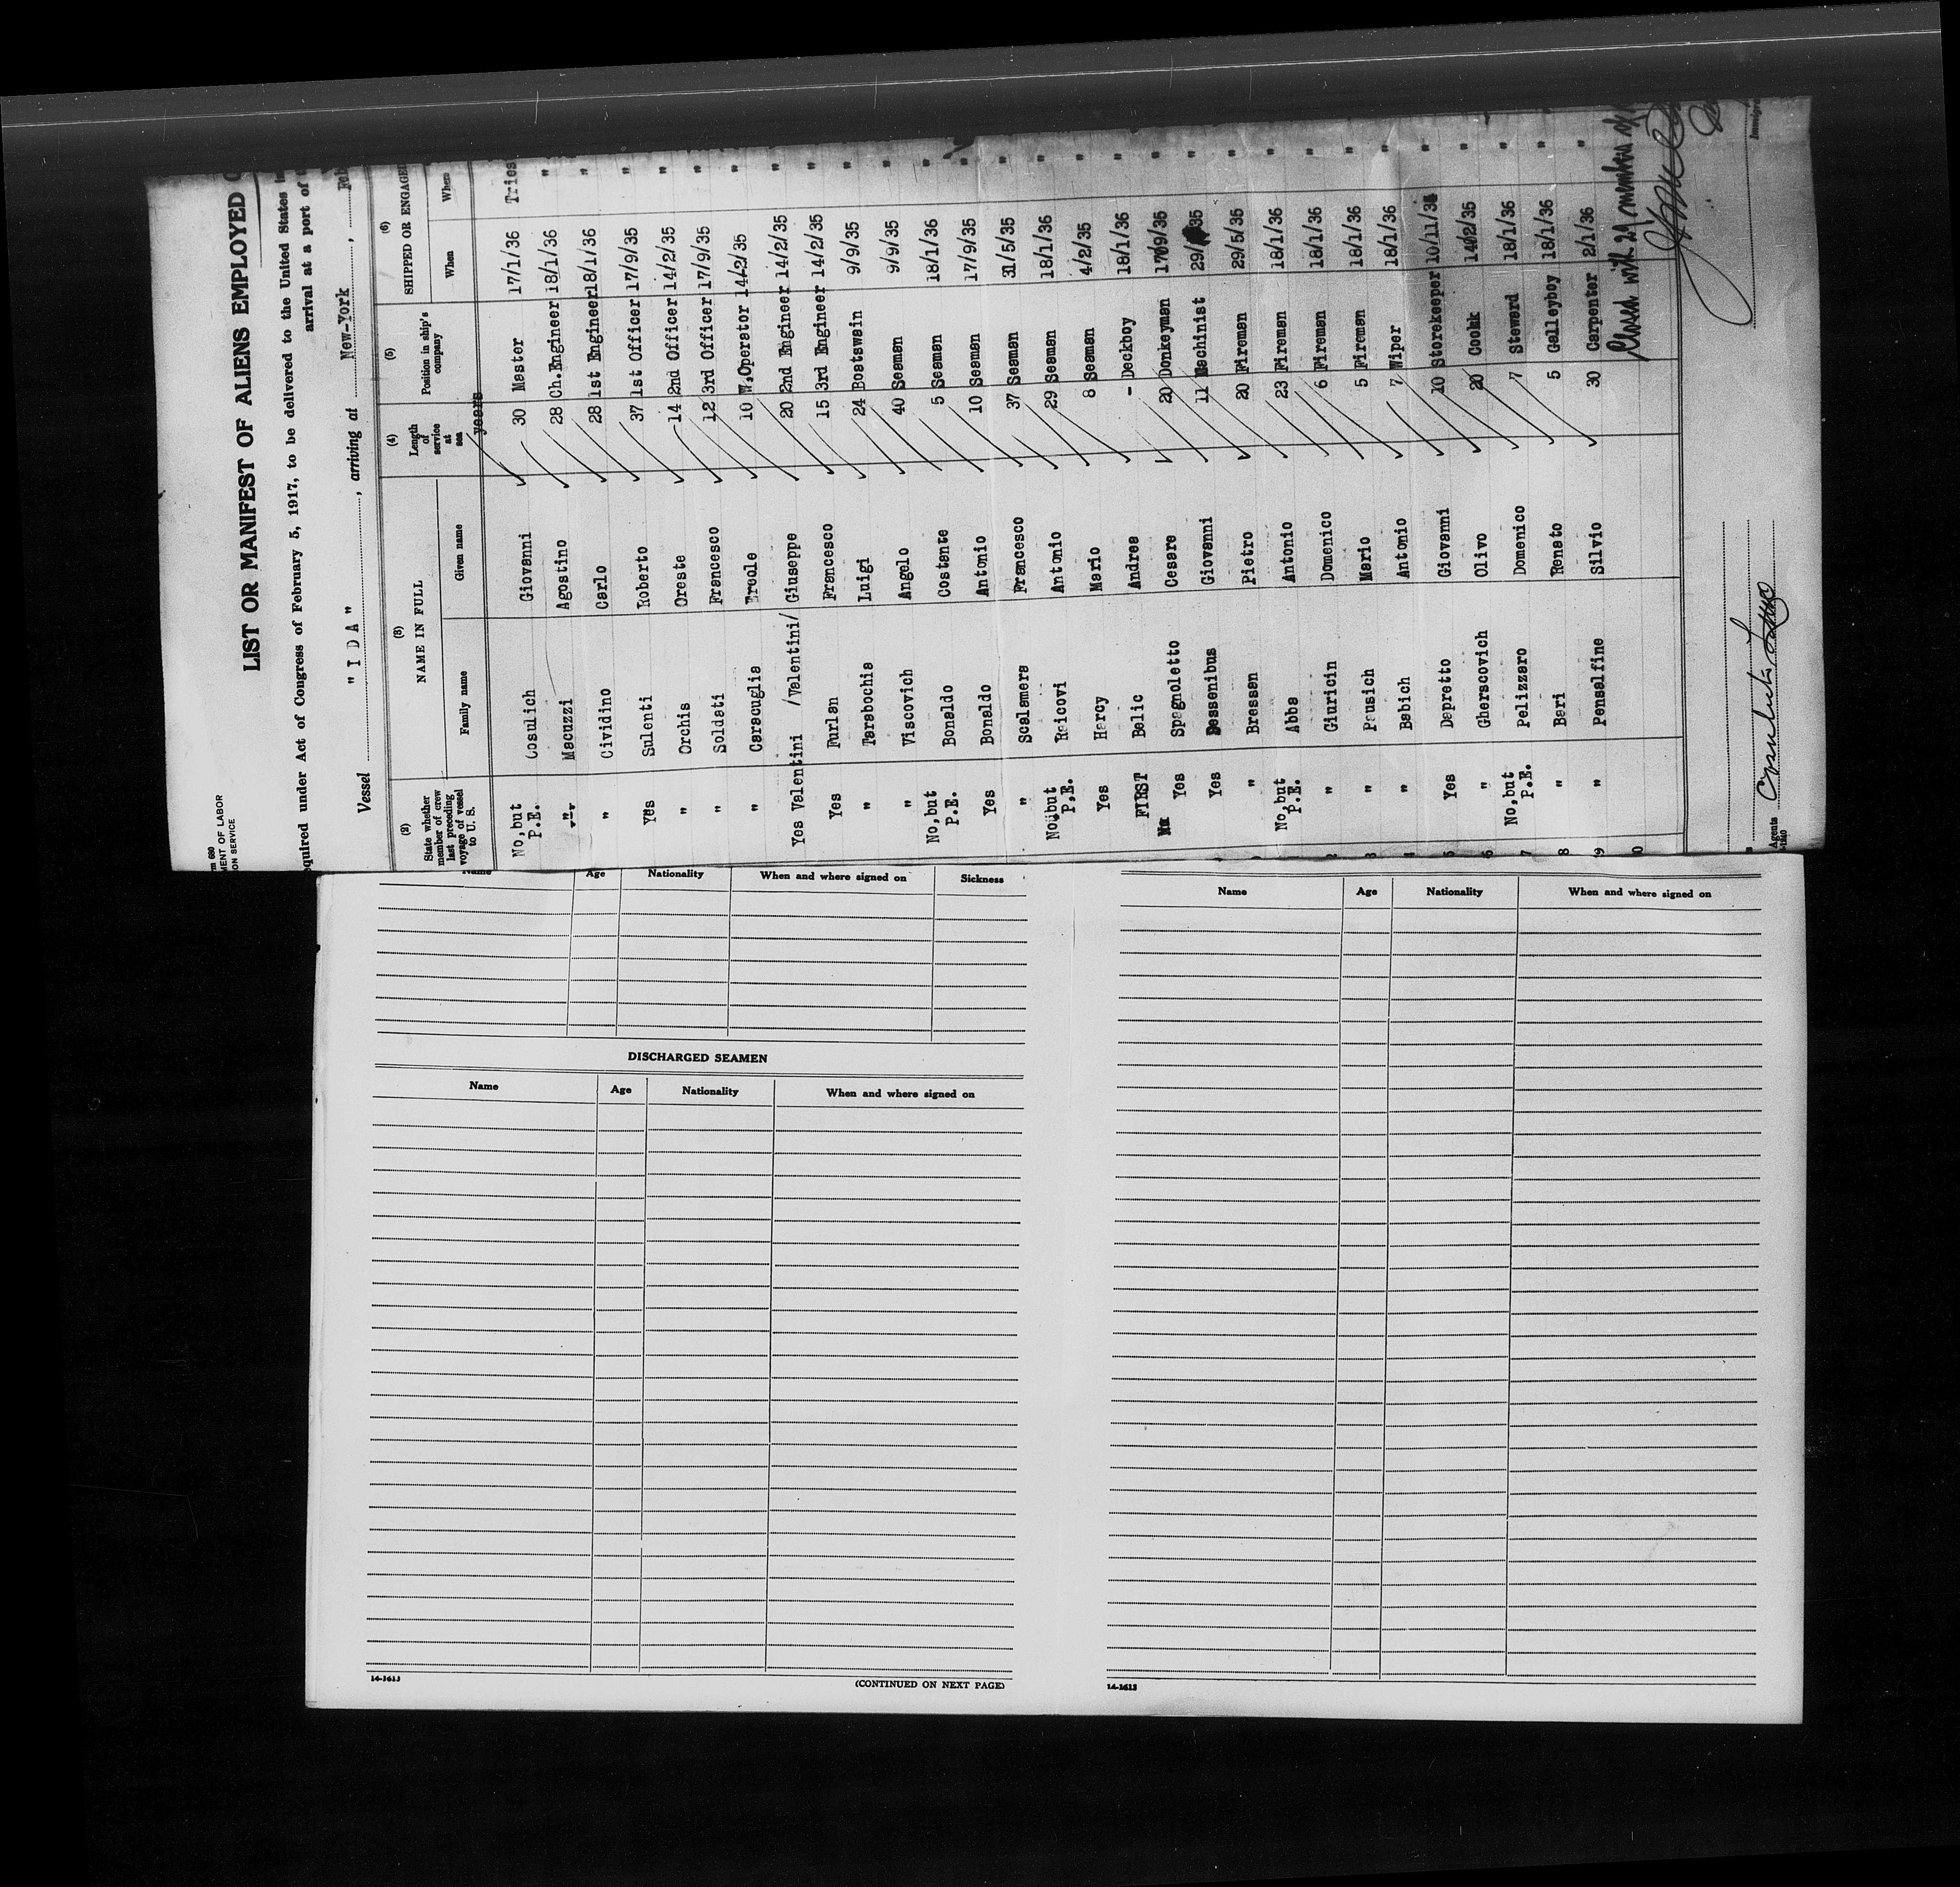 LIST OR MANIFEST OF ALIENS EMPLOYED
equired under Act of Congress of February 5, 1917, to be delivered to the United States
arrival at a port of
Vessel " I D A " , arriving at New-York , Feb
(2) (3) (4) (5) (6)
State whether member of crew last preceding voyage of vessel to U. S. NAME IN FULL Length of service at sea Position in ship's company SHIPPED OR ENGAGED
Family name Given name When Where
years
No,but P.E. Cosulich Giovanni 30 Master 17/1/36 Tries
" Macuzzi Agostino 28 Ch.Engineer 18/1/36 "
" Cividino Carlo 28 1st Engineer 18/1/36 "
Yes Sulenti Roberto 37 1st Officer 17/9/35 "
" Orchis Oreste 14 2nd Officer 14/2/35 "
" Soldati Francesco 12 3rd Officer 17/9/35 "
" Caracuglia Ercole 10 W,Operator 14/2/35 "
Yes Valentini /Valentini/ Giuseppe 20 2nd Engineer 14/2/35 "
Yes Furlan Francesco 15 3rd Engineer 14/2/35 "
" Tarabochia Luigi 24 Boatswain 9/9/35 "
" Viscovich Angelo 40 Seaman 9/9/35 "
No,but P.E. Bonaldo Costante 5 Seaman 18/1/36 "
Yes Bonaldo Antonio 10 Seaman 17/9/35 "
" Scalamera Francesco 37 Seaman 31/5/35 "
No,but P.E. Raicovi Antonio 29 Seaman 18/1/36 "
Yes Harcy Mario 8 Seaman 4/2/35 "
FIRST Belic Andrea - Deckboy 18/1/36 "
Yes Spagnoletto Cesare 20 Donkeyman 17/9/35 "
Yes Dessenibus Giovanni 11 Machinist "
" Bressan Pietro 20 Fireman 29/5/35 "
No,but P.E. Abba Antonio 23 Fireman 18/1/36 "
2 " Giuricin Domenico 6 Fireman 18/1/36 "
3 " Pausich Mario 5 Fireman 18/1/36 "
4 " Babich Antonio 7 Wiper 18/1/36 "
5 Yes Depretto Giovanni 10 Storekeeper "
6 " Gherscovich Olivo 20 Cookk 14/2/35 "
7 No,but P.E. Pelizzaro Domenico 7 Steward 18/1/36 "
8 " Bari Renato 5 Galleyboy 18/1/36 "
9 " Pensalfine Silvio 30 Carpenter 2/1/36 "
0
Closed with 29 members of
Agents
Name Age Nationality When and where signed on Sickness
DISCHARGED SEAMEN
Name Age Nationality When and where signed on
14-1613 (CONTINUED ON NEXT PAGE)
Name Age Nationality When and where signed on
14-1613